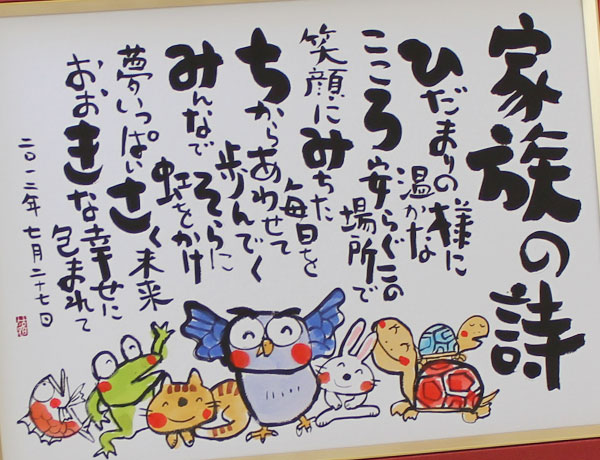 家族の詩
ひだまりの様に
温かな
こころ安らぐこの
場所で
笑顔にみちた
毎日を
ちからあわせて
歩んでく
みんなでそらに
虹をかけ
夢いっぱいさく未来
おおきな幸せに
包まれて
二〇一三年七月二十七日